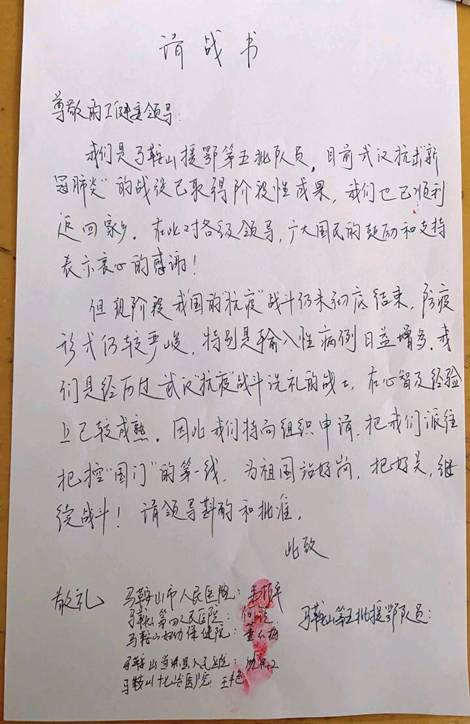 请战书
尊敬的卫健委领导：
我们是马鞍山援鄂第五批队员，目前武汉抗击"新
冠肺炎"的战役已取得阶段性成果，我们也已顺利
返回家乡。在此对各级领导，广大国民的鼓励和支持
表示衷心的感谢！
但现阶段我国的"抗疫"战斗仍未彻底结束，防疫
形式仍较严峻，特别是输入性病例日益增多。我
们是经历过武汉抗疫"战斗洗礼的战士，在心智及经验
上已较成熟。因此我们特向组织申请，把我们派往
把控"国门"的第一线，为祖国站好岗，把好关，继
续战斗！请领导斟酌和批准。
此致
敬礼
马鞍山第五批援鄂队员：
马鞍山市人民医院：
马鞍山第四人民医院：
马鞍山妇幼保健院：
马鞍山当涂县人民医院：
马鞍山十七冶医院：王艳